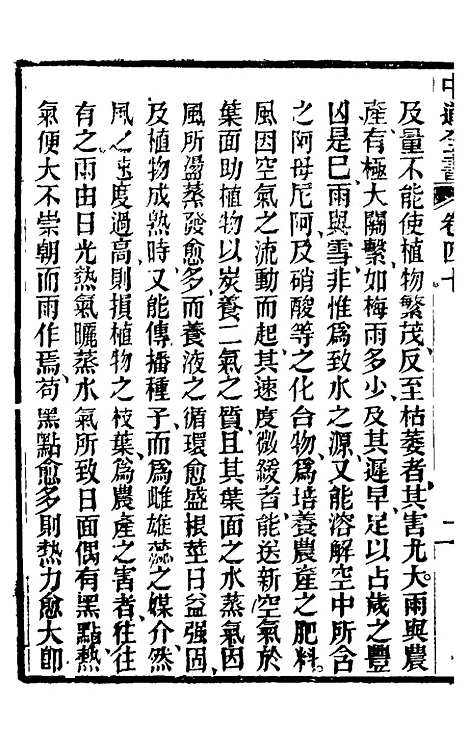 及量不能使植物繁茂、反至枯萎者、其害尤大。雨與農
產、有極大關繫、如梅雨多少、及其遲早、足以占歲之豐
凶是巳、雨與雪、非惟爲致水之源、又能溶解空中所含
之阿母尼阿、及硝酸等之化合物、爲培養農產之肥料。
風因空氣之流動而起、其速度微緩者、能送新空氣於
葉面、助植物以炭養二氣之質、且其葉面之水蒸氣、因
風所盪、蒸發愈多、而養液之循環愈盛、根莖日益强固、
及植物成熟時、又能傳播種子、而爲雌雄蕊之媒介、然
風之速度過高、則損植物之枝葉、爲農產之害者、往往
有之、雨由日光熱氣曬蒸水氣所致、日面偶有黑點、熱
氣便大、不崇朝而雨作焉、苟黑點愈多、則熱力愈大、卽